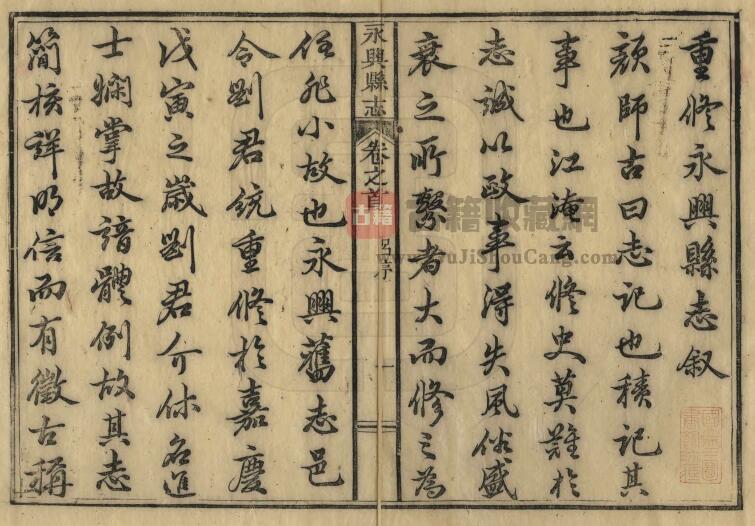 重修永興縣志叙
顏師古曰志記也積記其
事也江淹云修史莫難於
志誠以政事得失風俗盛
衰之所繫者大而修之為
永興縣志 卷之首 呂序 一
任非小故也永興舊志邑
令劉君統重修於嘉慶
戊寅之歲劉君介休名進
士嫻掌故諳體例故其志
簡核詳明信而有徵古稱
古籍
古籍收藏網
www.GuJiShouCang.com